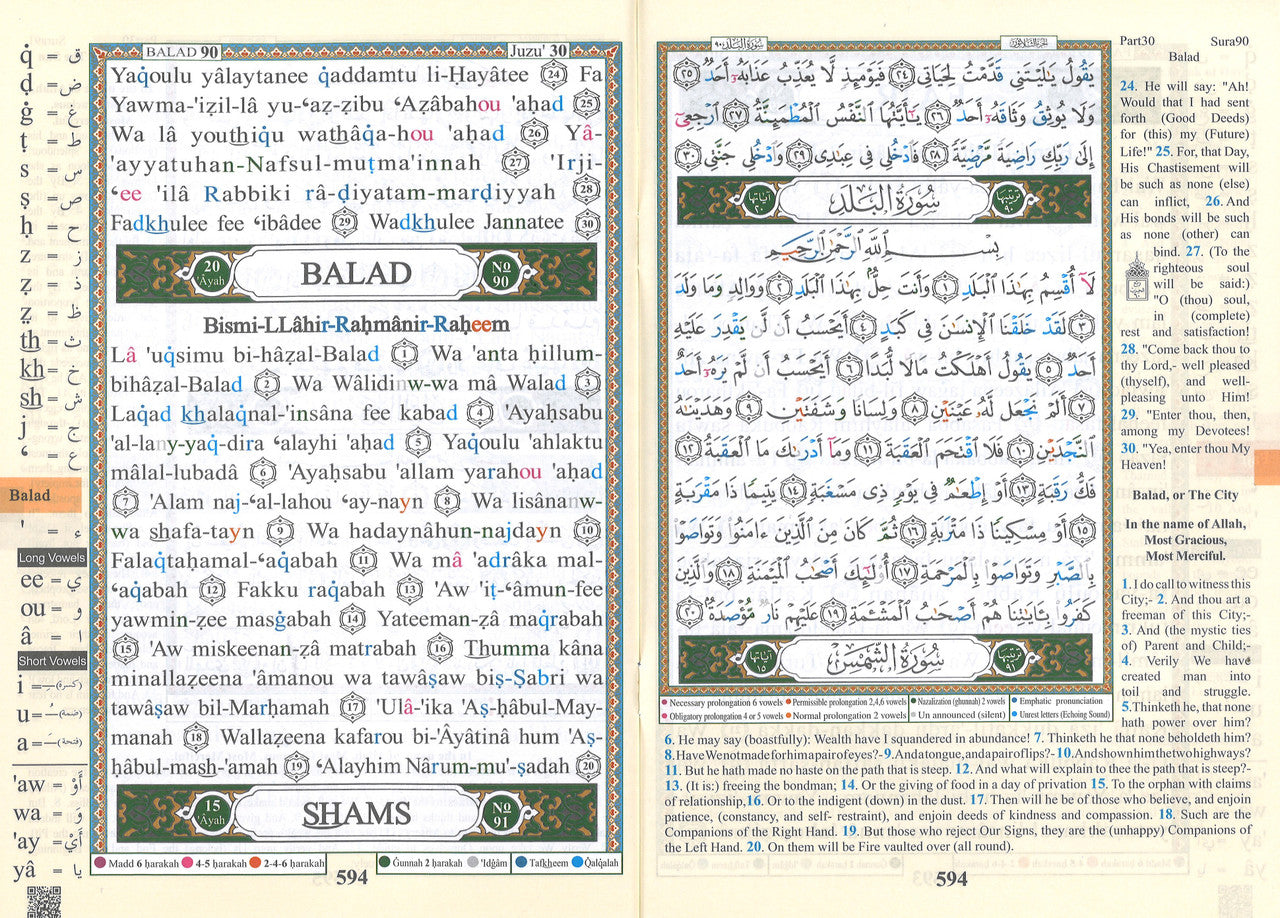 BALAD 90
Juzu' 30
Yaq̇oulu yâlaytanee q̇addamtu li-Ḥayâtee 24 Fa
Yawma-'iẓil-lâ yu-ʻaẓ-ẓibu ʻAẓâbahou 'aḥad 25
Wa lâ youthiq̇u wathâq̇a-hou 'aḥad 26 Yâ-
'ayyatuhan-Nafsul-muṭma'innah 27 'Irji-
ʻee 'ilâ Rabbiki râ-ḍiyatam-marḍiyyah 28
Fadkhulee fee ʻibâdee 29 Wadkhulee Jannatee 30
20 'Âyah
BALAD
No 90
Bismi-LLâhir-Raḥmânir-Raḥeem
Lâ 'uq̇simu bi-hâẓal-Balad 1 Wa 'anta ḥillum-
bihâẓal-Balad 2 Wa Wâlidinw-wa mâ Walad 3
Laq̇ad khalaq̇nal-'insâna fee kabad 4 'Ayaḥsabu
'al-lany-yaq̇-dira ʻalayhi 'aḥad 5 Yaq̇oulu 'ahlaktu
mâlal-lubadâ 6 'Ayaḥsabu 'allam yarahou 'aḥad
7 'Alam naj-ʻal-lahou ʻay-nayn 8 Wa lisânanw-
wa shafa-tayn 9 Wa hadaynâhun-najdayn 10
Falaq̇taḥamal-ʻaq̇abah 11 Wa mâ 'adrâka mal-
ʻaq̇abah 12 Fakku raq̇abah 13 'Aw 'iṭ-ʻâmun-fee
yawmin-ẓee masġabah 14 Yateeman-ẓâ maq̇rabah
15 'Aw miskeenan-ẓâ matrabah 16 Thumma kâna
minallaẓeena 'âmanou wa tawâṣaw biṣ-Ṣabri wa
tawâṣaw bil-Marḥamah 17 'Ulâ-'ika 'Aṣ-ḥâbul-May-
manah 18 Wallaẓeena kafarou bi-'Âyâtinâ hum 'Aṣ-
ḥâbul-mash-'amah 19 ʻAlayhim Nârum-mu'-ṣadah 20
15 'Âyah
SHAMS
No 91
Madd 6 ḥarakah 4-5 ḥarakah 2-4-6 ḥarakah Ġunnah 2 ḥarakah 'Idġâm Tafkheem Q̇alq̇alah
594
q̇ = ق
ḍ = ض
ġ = غ
ṭ = ط
s = س
ṣ = ص
ḥ = ح
z = ز
ẓ = ذ
z̤ = ظ
th = ث
kh = خ
sh = ش
j = ج
ʻ = ع
Balad
' = ء
Long Vowels
ee = ي
ou = و
â = ا
Short Vowels
i = (كسرة)
u = (ضمة)
a = (فتحة)
'aw = أَوْ
wa = وَ
'ay = أَيْ
yâ = يا
سُورَةُ البَلَد ٩٠
الجزء الثلاثون
يَقُولُ يَٰلَيْتَنِى قَدَّمْتُ لِحَيَاتِى ٢٤ فَيَوْمَئِذٍ لَّا يُعَذِّبُ عَذَابَهُۥٓ أَحَدٌ ٢٥
وَلَا يُوثِقُ وَثَاقَهُۥٓ أَحَدٌ ٢٦ يَٰٓأَيَّتُهَا ٱلنَّفْسُ ٱلْمُطْمَئِنَّةُ ٢٧ ٱرْجِعِىٓ
إِلَىٰ رَبِّكِ رَاضِيَةً مَّرْضِيَّةً ٢٨ فَٱدْخُلِى فِى عِبَٰدِى ٢٩ وَٱدْخُلِى جَنَّتِى ٣٠
ترتيبها ٩٠
سُورَةُ البَلَدِ
آياتها ٢٠
بِسْمِ ٱللَّهِ ٱلرَّحْمَٰنِ ٱلرَّحِيمِ
لَآ أُقْسِمُ بِهَٰذَا ٱلْبَلَدِ ١ وَأَنتَ حِلٌّۢ بِهَٰذَا ٱلْبَلَدِ ٢ وَوَالِدٍ وَمَا وَلَدَ
٣ لَقَدْ خَلَقْنَا ٱلْإِنسَٰنَ فِى كَبَدٍ ٤ أَيَحْسَبُ أَن لَّن يَقْدِرَ عَلَيْهِ
أَحَدٌ ٥ يَقُولُ أَهْلَكْتُ مَالًا لُّبَدًا ٦ أَيَحْسَبُ أَن لَّمْ يَرَهُۥٓ أَحَدٌ
٧ أَلَمْ نَجْعَل لَّهُۥ عَيْنَيْنِ ٨ وَلِسَانًا وَشَفَتَيْنِ ٩ وَهَدَيْنَٰهُ
ٱلنَّجْدَيْنِ ١٠ فَلَا ٱقْتَحَمَ ٱلْعَقَبَةَ ١١ وَمَآ أَدْرَىٰكَ مَا ٱلْعَقَبَةُ ١٢
فَكُّ رَقَبَةٍ ١٣ أَوْ إِطْعَٰمٌ فِى يَوْمٍ ذِى مَسْغَبَةٍ ١٤ يَتِيمًا ذَا مَقْرَبَةٍ
١٥ أَوْ مِسْكِينًا ذَا مَتْرَبَةٍ ١٦ ثُمَّ كَانَ مِنَ ٱلَّذِينَ ءَامَنُوا۟ وَتَوَاصَوْا۟
بِٱلصَّبْرِ وَتَوَاصَوْا۟ بِٱلْمَرْحَمَةِ ١٧ أُو۟لَٰٓئِكَ أَصْحَٰبُ ٱلْمَيْمَنَةِ ١٨ وَٱلَّذِينَ
كَفَرُوا۟ بِـَٔايَٰتِنَا هُمْ أَصْحَٰبُ ٱلْمَشْـَٔمَةِ ١٩ عَلَيْهِمْ نَارٌ مُّؤْصَدَةٌۢ ٢٠
ترتيبها ٩١
سُورَةُ الشَّمْسِ
آياتها ١٥
Necessary prolongation 6 vowels Permissible prolongation 2,4,6 vowels Nazalization (ghunnah) 2 vowels Emphatic pronunciation
Obligatory prolongation 4 or 5 vowels Normal prolongation 2 vowels Un announced (silent) Unrest letters (Echoing Sound)
Part30 Sura90
Balad
24. He will say: "Ah!
Would that I had sent
forth (Good Deeds)
for (this) my (Future)
Life!" 25. For, that Day,
His Chastisement will
be such as none (else)
can inflict, 26. And
His bonds will be such
as none (other) can
bind. 27. (To the
righteous soul
will be said:)
"O (thou) soul,
in (complete)
rest and satisfaction!
28. "Come back thou to
thy Lord,- well pleased
(thyself), and well-
pleasing unto Him!
29. "Enter thou, then,
among my Devotees!
30. "Yea, enter thou My
Heaven!
Balad, or The City
In the name of Allah,
Most Gracious,
Most Merciful.
1. I do call to witness this
City;- 2. And thou art a
freeman of this City;-
3. And (the mystic ties
of) Parent and Child;-
4. Verily We have
created man into
toil and struggle.
5.Thinketh he, that none
hath power over him?
6. He may say (boastfully): Wealth have I squandered in abundance! 7. Thinketh he that none beholdeth him?
8. Have We not made for him a pair of eyes?- 9. And a tongue, and a pair of lips?- 10. And shown him the two highways?
11. But he hath made no haste on the path that is steep. 12. And what will explain to thee the path that is steep?-
13. (It is:) freeing the bondman; 14. Or the giving of food in a day of privation 15. To the orphan with claims
of relationship,16. Or to the indigent (down) in the dust. 17. Then will he be of those who believe, and enjoin
patience, (constancy, and self- restraint), and enjoin deeds of kindness and compassion. 18. Such are the
Companions of the Right Hand. 19. But those who reject Our Signs, they are the (unhappy) Companions of
the Left Hand. 20. On them will be Fire vaulted over (all round).
594